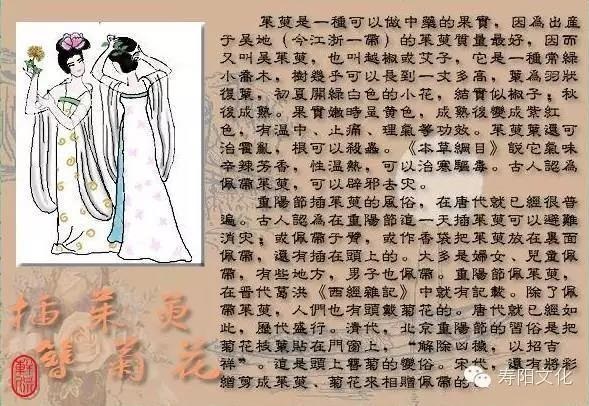 茱萸是一種可以做中藥的果實，因為出産
于吳地（今江浙一帶）的茱萸質量最好，因而
又叫吳茱萸，也叫越椒或艾子，它是一種常綠
小喬木，樹幾乎可以長到一丈多高，葉為羽狀
復葉，初夏開綠白色的小花，結實似椒子；秋
後成熟。果實嫩時呈黃色，成熟後變成紫紅
色，有溫中、止痛、理氣等功效。茱萸葉還可
治霍亂，根可以殺蟲。《本草綱目》說它氣味
辛辣芳香，性溫熱，可以治寒驅毒。古人認為
佩帶茱萸，可以辟邪去灾。
重陽節插茱萸的風俗，在唐代就已經很普
遍。古人認為在重陽節這一天插茱萸可以避難
消灾；或佩帶于臂，或作香袋把茱萸放在裏面
佩帶，還有插在頭上的。大多是婦女、兒童佩
帶，有些地方，男子也佩帶。重陽節佩茱萸，
在晉代葛洪《西經雜記》中就有記載。除了佩
帶茱萸，人們也有頭戴菊花的。唐代就已經如
此，歷代盛行。清代，北京重陽節的習俗是把
菊花枝葉貼在門窗上，“解除凶穢，以招吉
祥”。這是頭上簪菊的變俗。宋代，還有將彩
繒剪成茱萸、菊花來相贈佩帶的。
插茱萸
簪菊花
寿阳文化